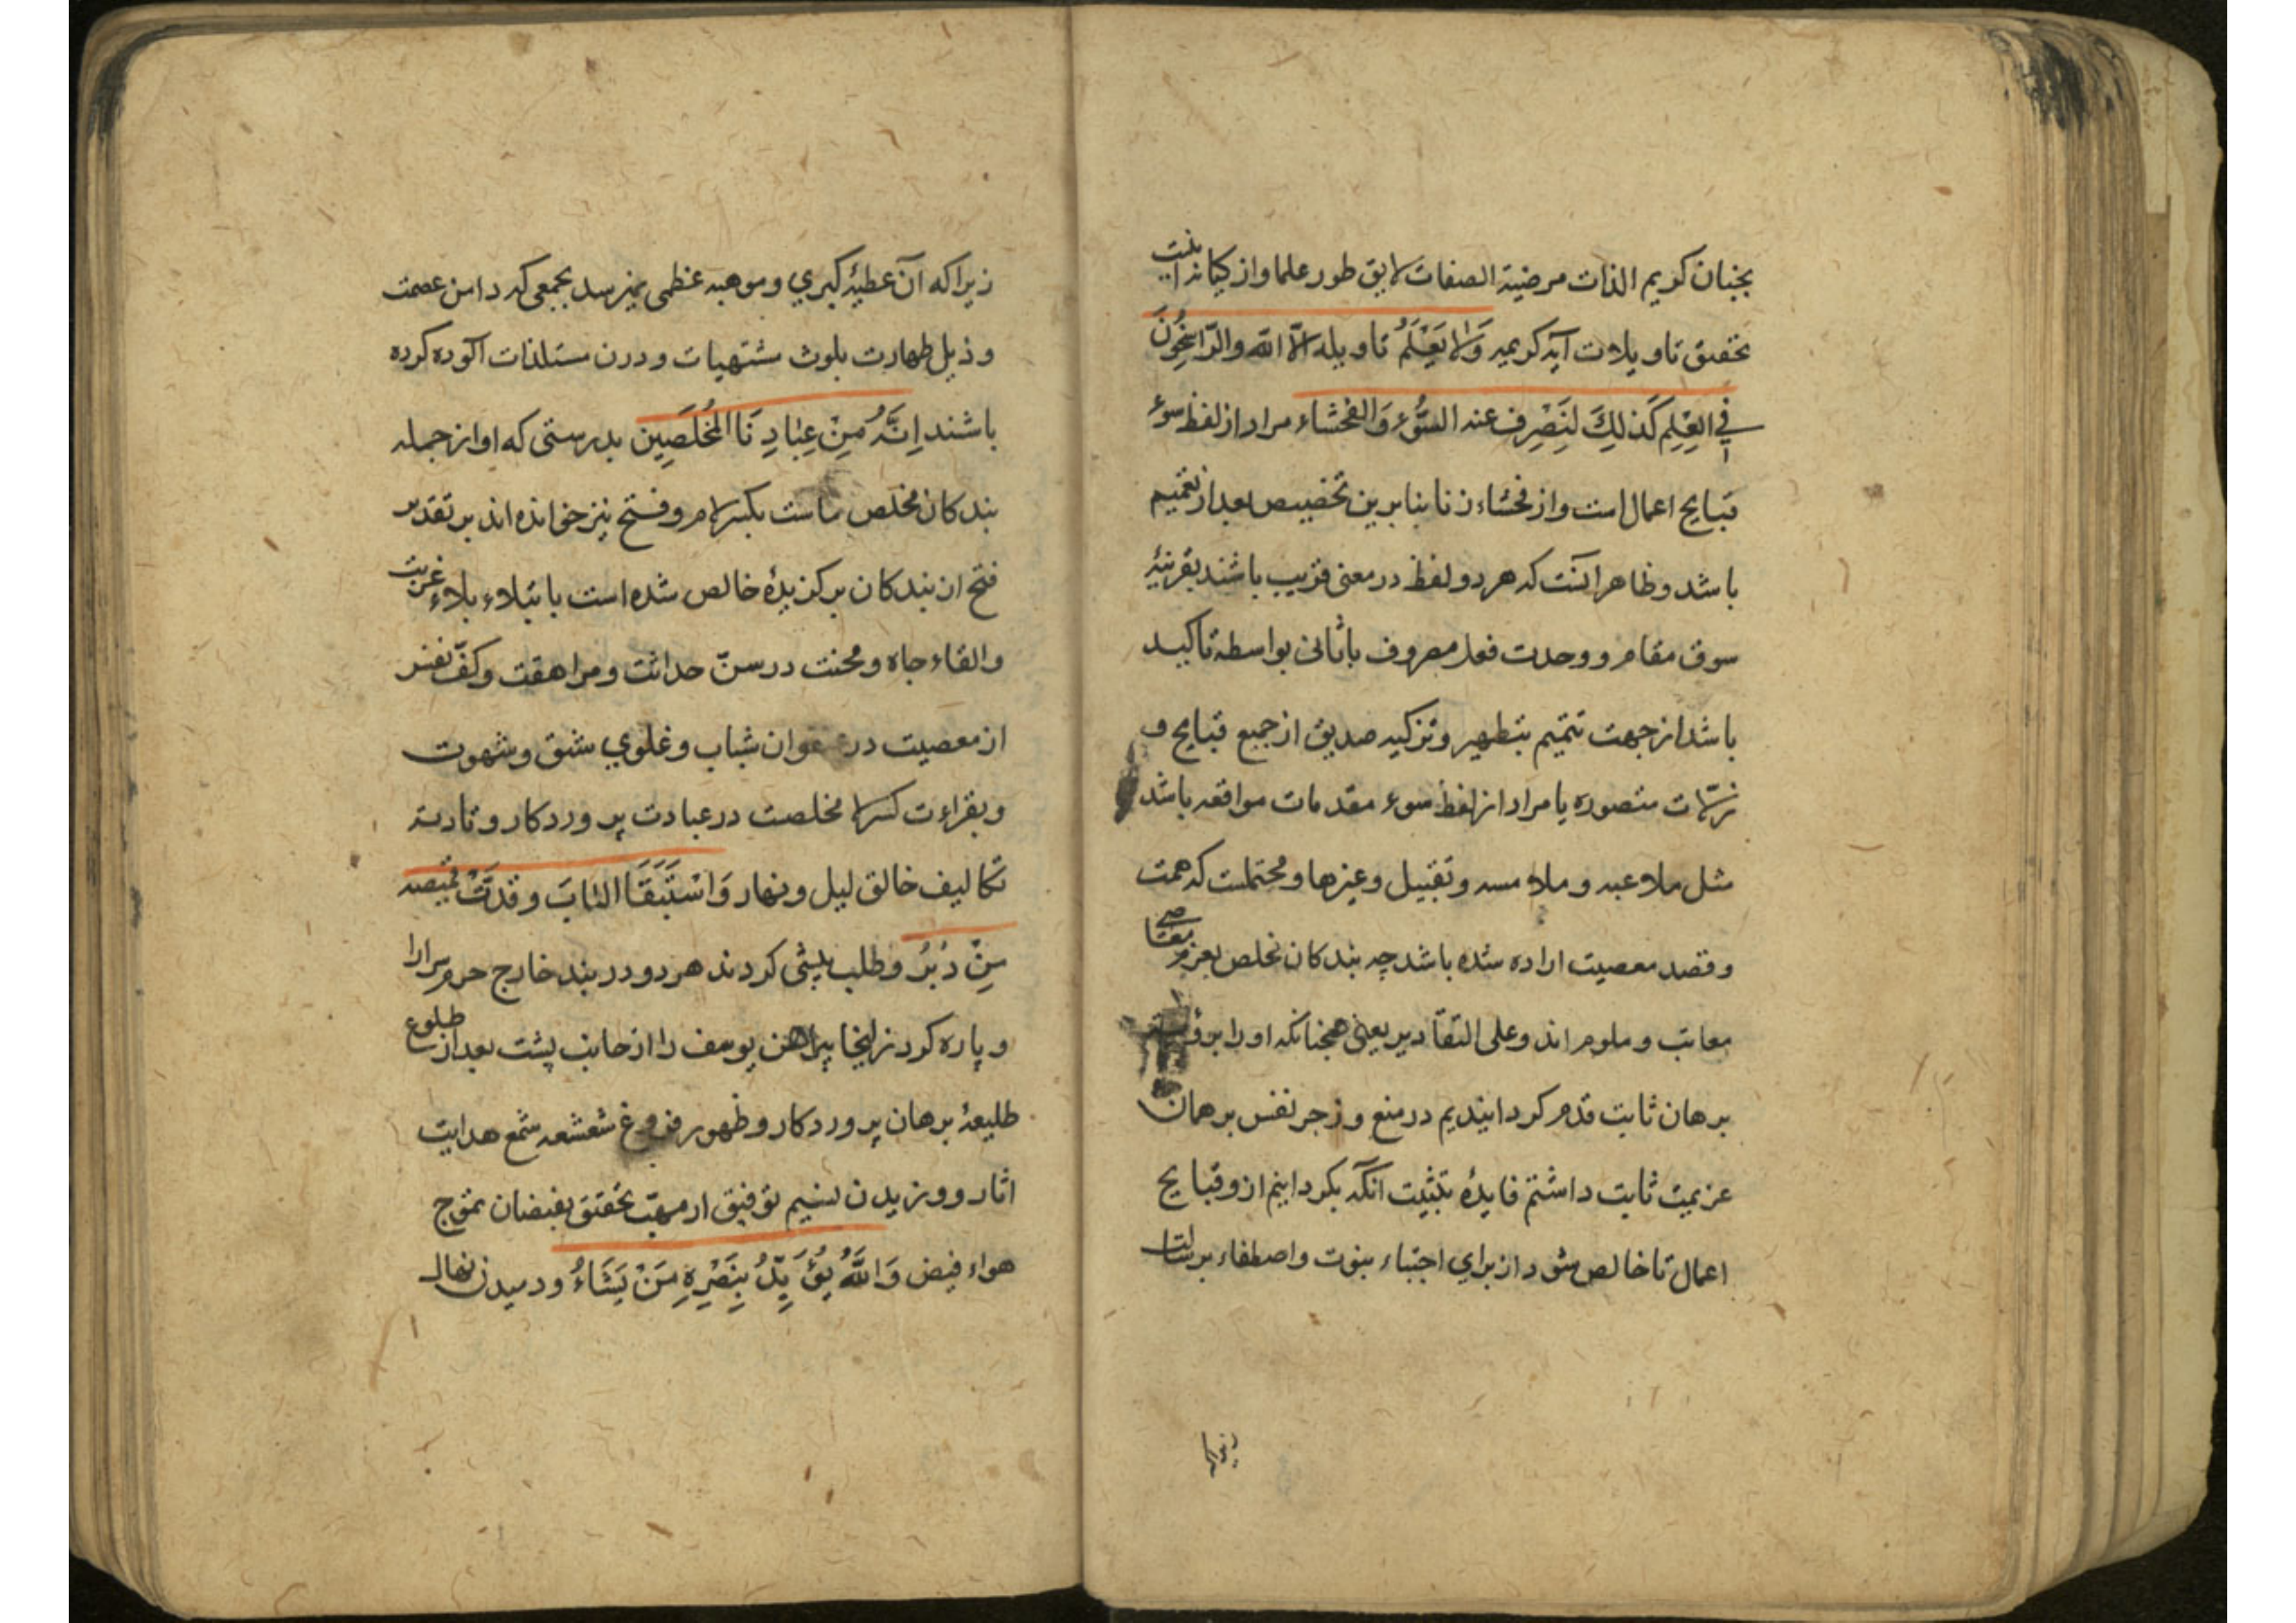 بجنان کریم الذات مرضیة الصفات لایق طور علما واز کیانه
تحقیق تاویلات آیه کریمه وَلَا یَعْلَمُ تاویله الّا الله والرّاسِخُونَ
فِي العِلِم کَذلِكَ لِنَصْرِفَ عنه السُّوءَ وَالفَحْشاء مراد از لفظ سوء
قبایح اعمال است واز فحشاء زنا بنابرین تخصیص بعد از تعمیم
باشد وظاهر آنست که هر دو لفظ در معنی قریب باشند بقرینۀ
سوق مقام و وحدت فعل مصروف با ثانی بواسطه تاکید
باشد از جهت تتمیم بتطهیر وتزکیه صدیق از جمیع قبایح و
زلّات متصوره یا مراد از لفظ سوء مقدمات مواقعه باشد
مثل ملاعبه و ملامسه و تقبیل وغیرها ومحتملست که همت
وقصد معصیت اراده شده باشد چه بندکان مخلص بعزم معاصی
معاتب و ملوم اند وعلی التقادیر یعنی همجنانکه اورا بر
برهان ثابت قدم کردانیدیم در منع وزجر نفس برهمان
عزیمت ثابت داشتم فایدۀ تثبیت آنکه بکردانیم ازو قبایح
اعمال تا خالص شود از برای اجتباء بنبوت واصطفاء برسالت
زیرا
زیرا که آن عطیۀ کبري و موهبه عظمی نمیرسد بجمعی که دامن عصمت
و ذیل طهارت بلوث مشتهیات و درن مستلذات آلوده کرده
باشند اِنَّهُ مِنْ عِبَادِنَا المُخلَصِین بدرستی که او از جمله
بندکان مخلص ماست بکسر لام و فتح نیز خوانده اند بر تقدیر
فتح از بندکان برکزیدۀ خالص شده است بابتلاء بلاء غربت
والقاء جاه و محنت در سنّ حداثت و مراهقت وکفّ نفس
از معصیت در عنفوان شباب و غلوي شبق و شهوت
وبقراءت کسر لا مخلصت در عبادت پروردکار و تادیة
تکالیف خالق لیل و نهار وَاسْتَبَقَا البَابَ وقدَّتْ قمیصه
مِنْ دُبُرُ وطلب پیشی کردند هر دو در بند خارج حرم سرا را
و پاره کرد زلیخا پیراهن یوسف را از جانب پشت بعد از طلوع
طلیعۀ برهان پروردکار و ظهور فروغ شعشعه شمع هدایت
اثار و وزیدن نسیم توفیق از مهبّ تحقیق بفیضان تموّج
هواء فیض وَاللَّهُ یُؤَیِّدُ بِنَصْرِهِ مَنْ یَشَاءُ و دمیدن نهال